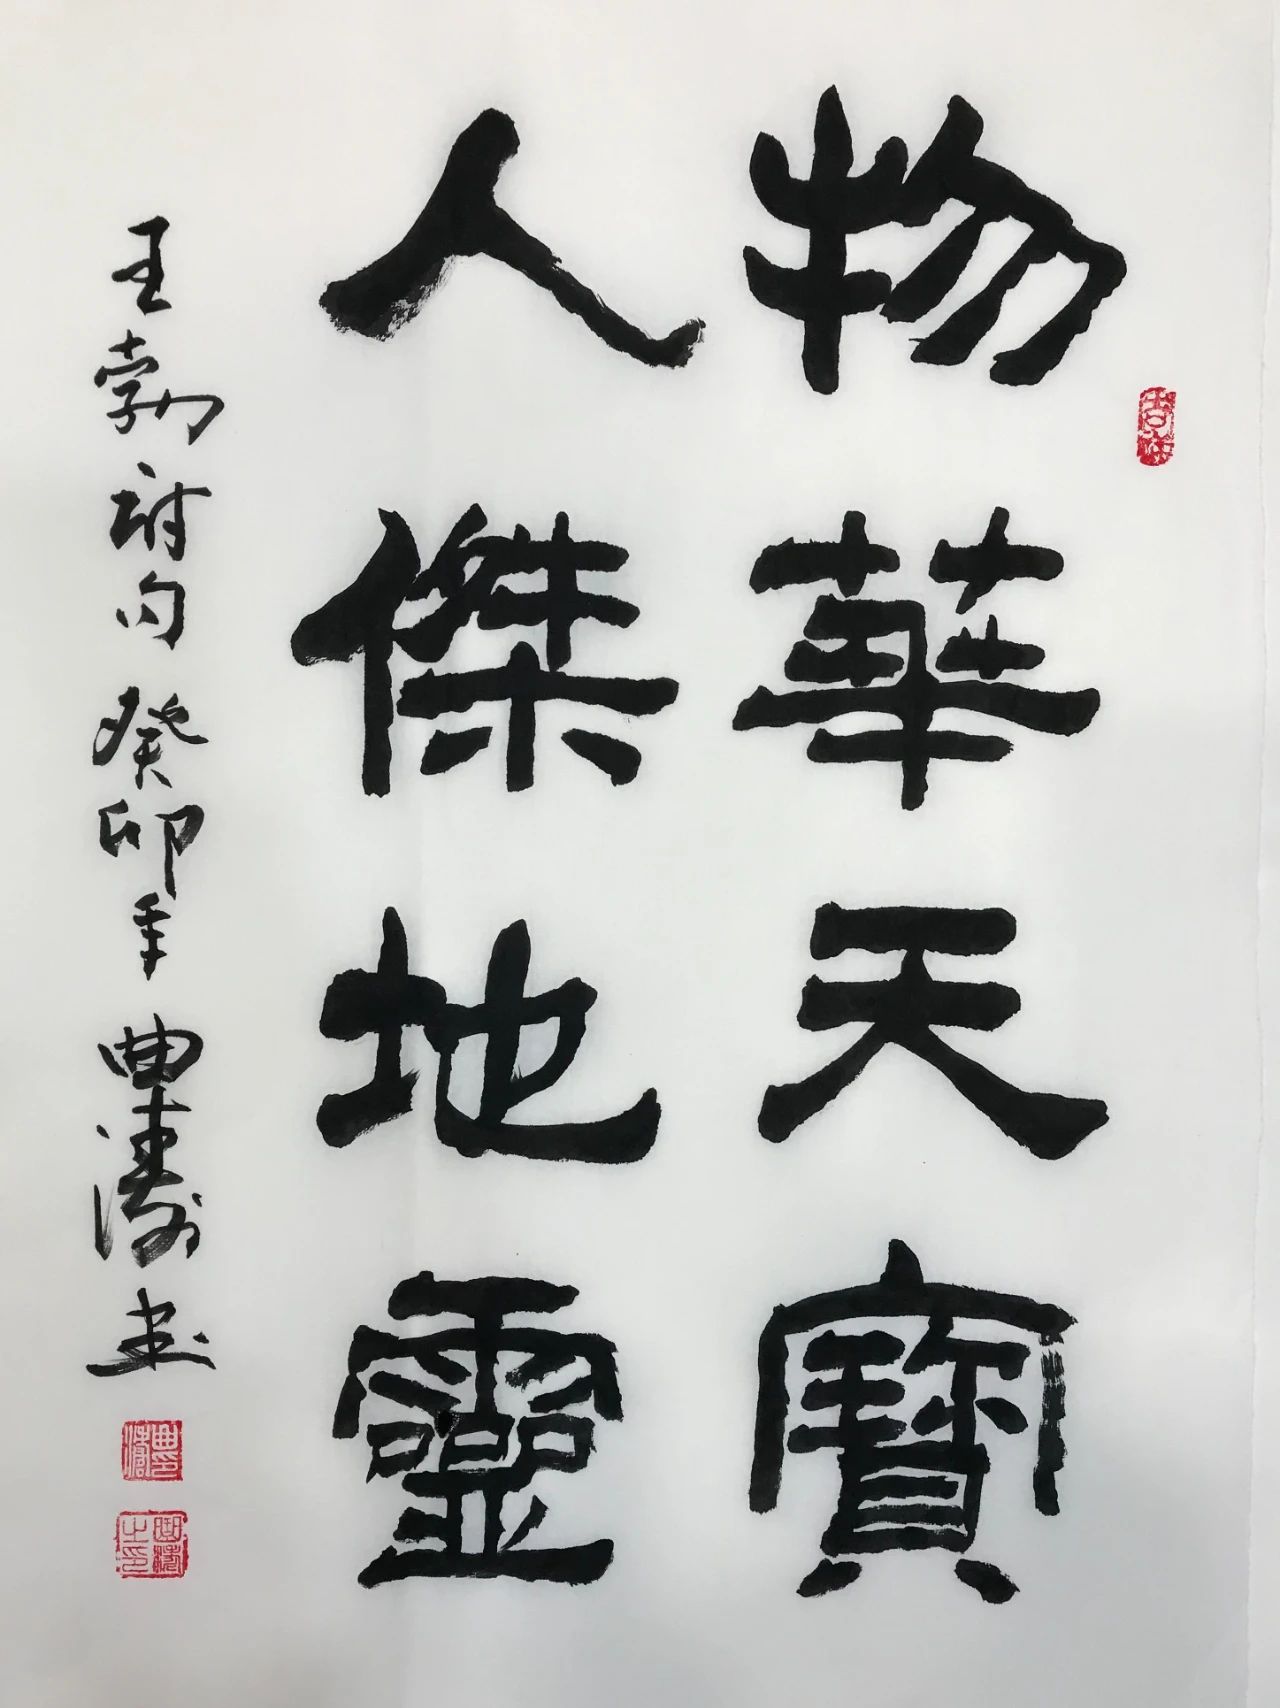 物華天寶
人傑地靈
王勃詩句 癸卯年 曲濤書